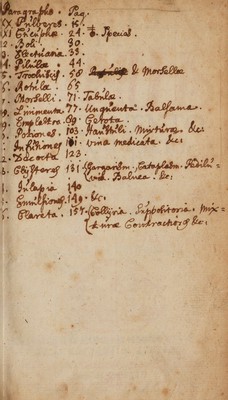 Paragraphs. Pag.
XX Pulveres. 15.
XXI Eleuphæ. 24. Species.
2. Boli. 30.
3. Electuaria. 33.
4. Pilulæ. 44.
5. Trochisci. 58 & Morsellæ
6. Rotulæ 65
7. Morselli. 71. Tabulæ.
Linimenta. 77. Unguenta. Balsama.
Emplastra. 89. Cerota.
Potiones. 103. Haustuli. Mixturæ &c.
Infusiones 101. vina medicata. &c:
2. Decocta 123.
3. Clysteres 131. Gargarism. Cataplasm. Pedilu-
via. Balnea. &c:
Iulapia 140
Emulsiones. 149. &c.
Clareta. 157. Collyria. Suppositoria. Mix-
turæ Contractiores &c: